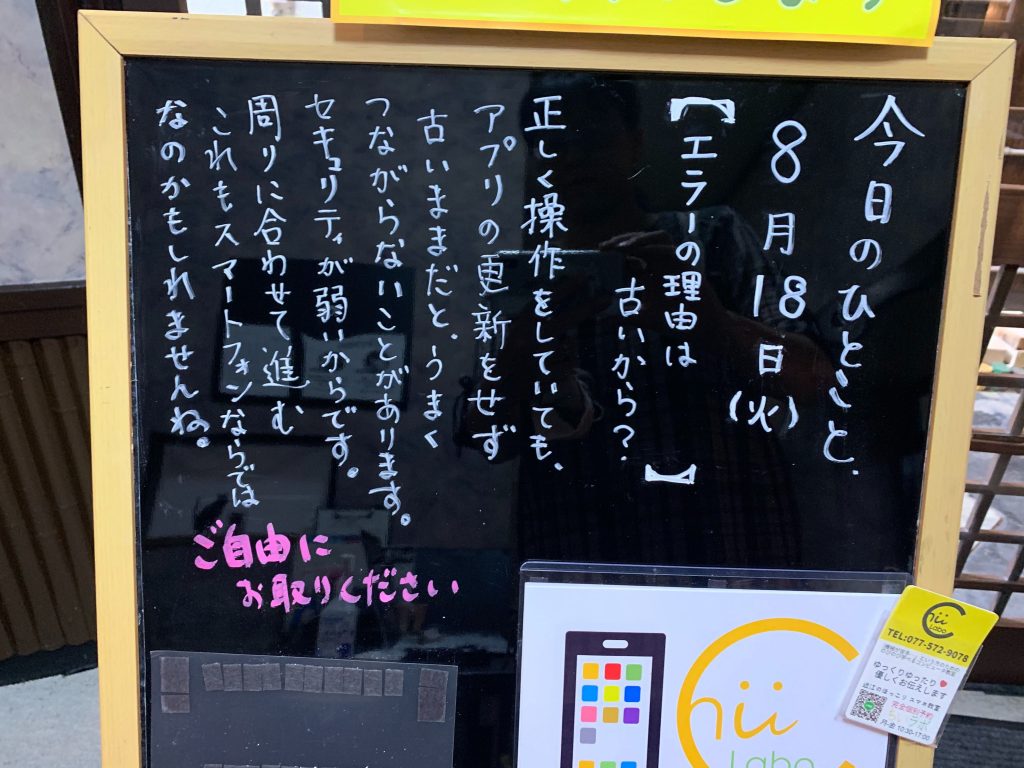 今日のひとこと.
8月18日(火)
【エラーの理由は
古いから?】
正しく操作をしていても、
アプリの更新をせず
古いままだと、うまく
つながらないことがあります。
セキュリティが弱いからです。
周りに合わせて進む
これもスマートフォンならでは
なのかもしれませんね。
ご自由に
お取りください
hii
Labo
Chii
Labo
TEL:077-572-9078
ゆっくりゆったり♥
優しくお伝えします
近江のほっこりスマホ教室
完全個別予約
月-金 10:30-17:00